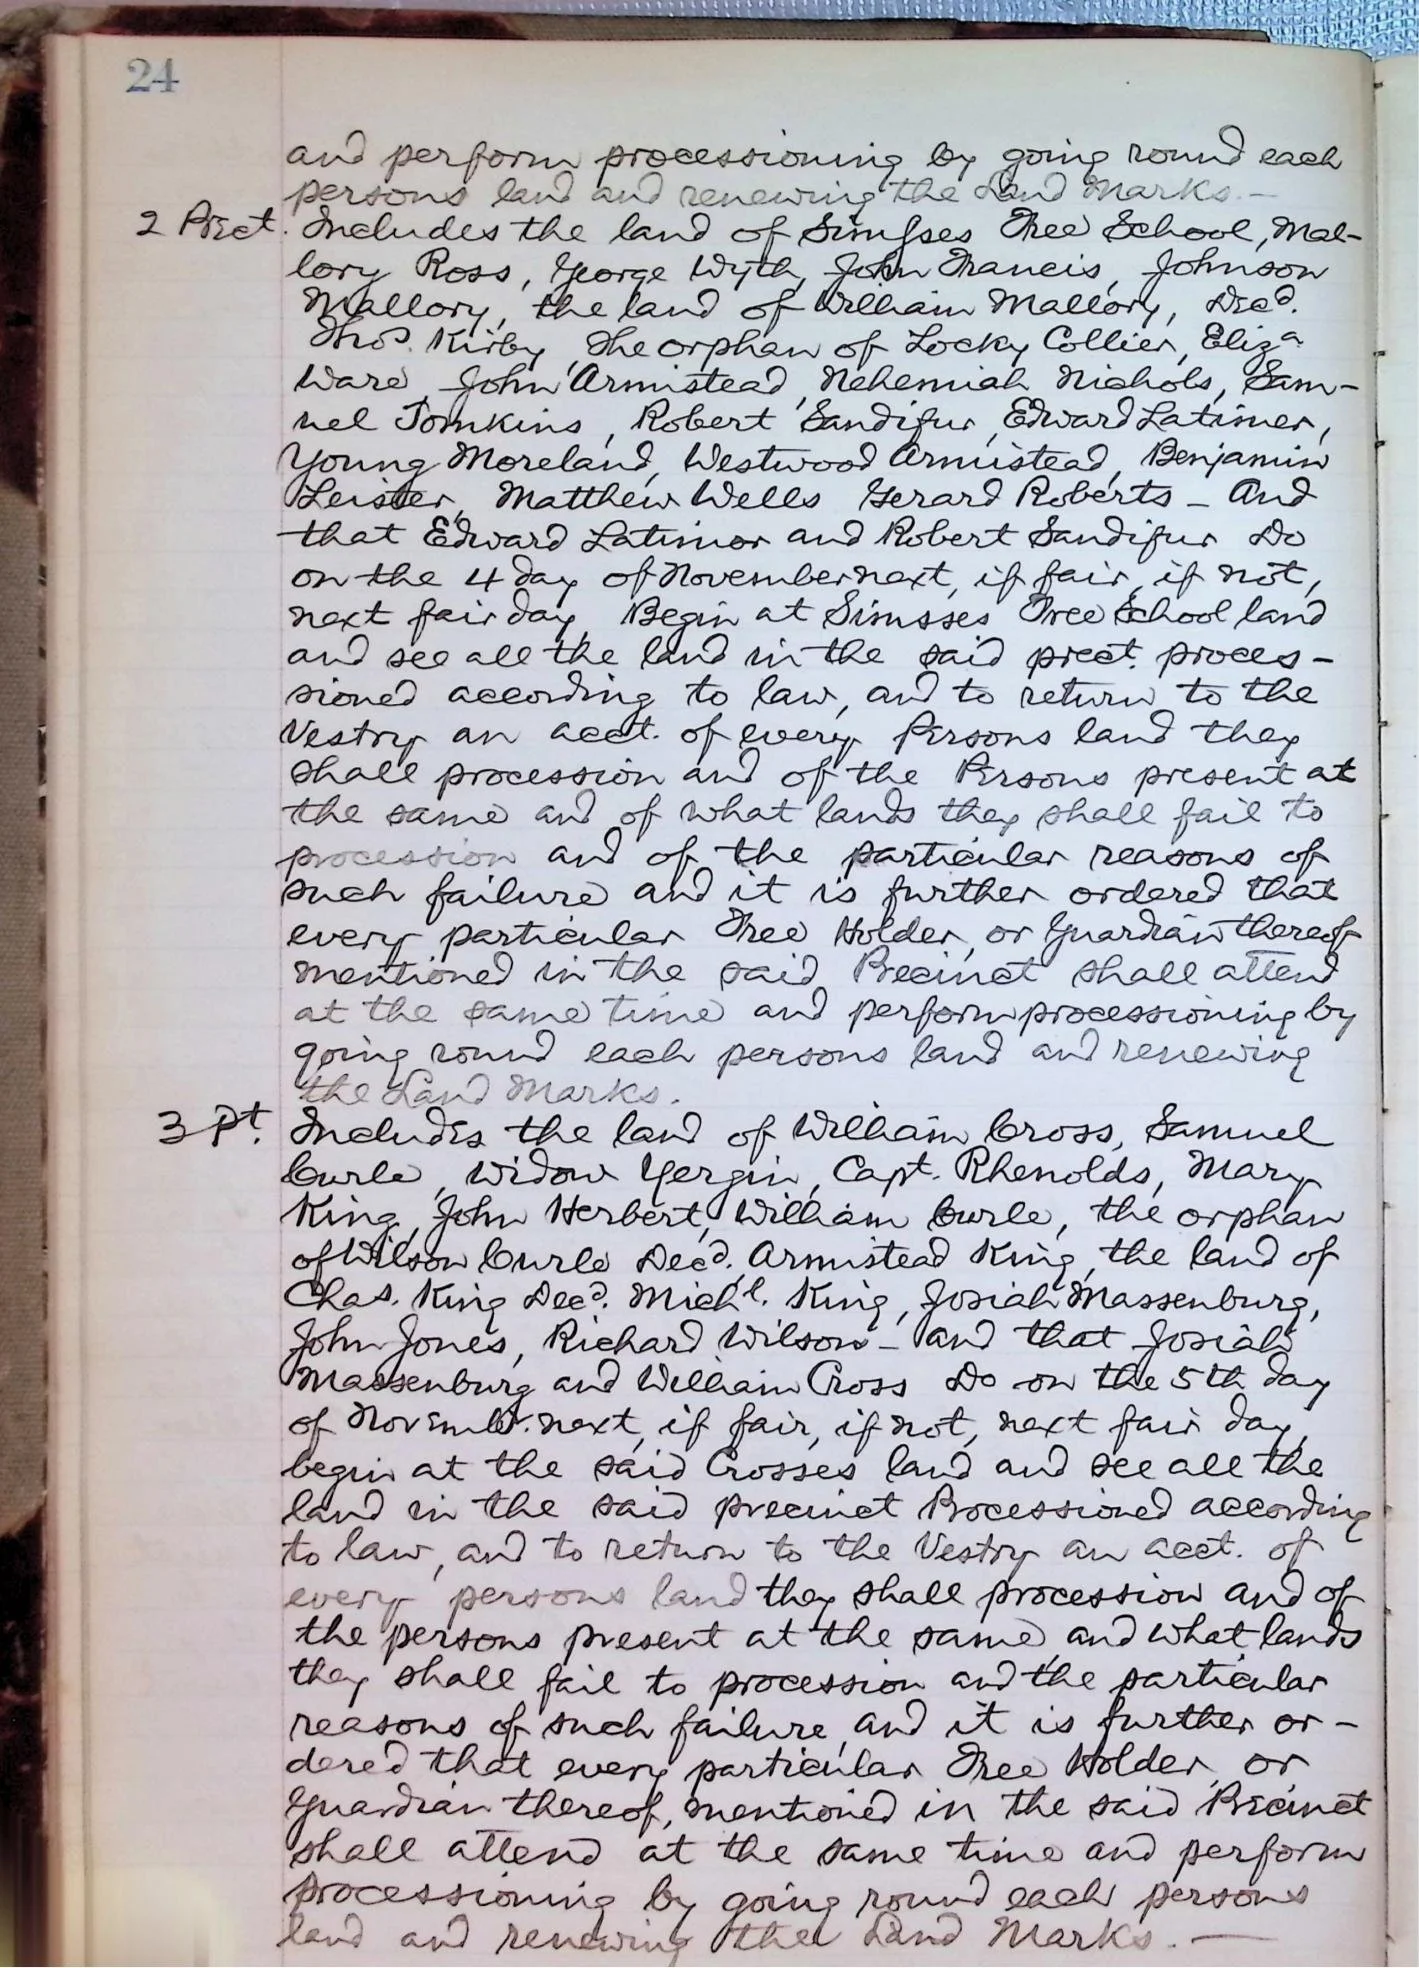 24
and perform processioning by going round each
persons land and renewing the Land Marks. —
2 Prect. Includes the land of Simsses Free School, Mal-
lory Ross, George Wyth, John Francis, Johnson
Mallory, the land of William Mallory, Decd.
Thos. Kirby, The orphan of Locky Collier, Eliza
Ware, John Armistead, Nehemiah Nichols, Sam-
uel Tomkins, Robert Sandifur, Edward Latimer,
Young Moreland, Westwood Armistead, Benjamin
Leister, Matthew Wells Gerard Roberts – And
that Edward Latimor and Robert Sandifur Do
on the 4 day of November next, if fair, if not,
next fair day, Begin at Simsses Free School land
and see all the land in the said prect. proces-
sioned according to law, and to return to the
Vestry an acct. of every Persons land they
shall procession and of the Persons present at
the same and of what lands they shall fail to
procession and of the particular reasons of
such failure and it is further ordered that
every particular Free Holder, or Guardian thereof
mentioned in the said Precinct shall attend
at the same time and perform processioning by
going round each persons land and renewing
the Land Marks.
3 Pt. Includes the land of William Cross, Samuel
Curle, Widow Yergin, Capt. Rhenolds, Mary
King, John Herbert, William Curle, the orphan
of Wilson Curle Decd. Armistead King, the land of
Chas. King Decd. Michl. King, Josiah Massenburg,
John Jones, Richard Wilson – and that Josiah
Massenburg and William Cross Do on the 5th day
of Novembr. next, if fair, if not, next fair day,
begin at the said Crosses land and see all the
land in the said precinct Processioned according
to law, and to return to the Vestry an acct. of
every persons land they shall procession and of
the persons present at the same, and what lands
they shall fail to procession and the particular
reasons of such failure, and it is further or-
dered that every particular Free Holder, or
Guardian thereof, mentioned in the said Precinct
shall attend at the same time and perform
processioning by going round each persons
land and renewing the Land Marks. —